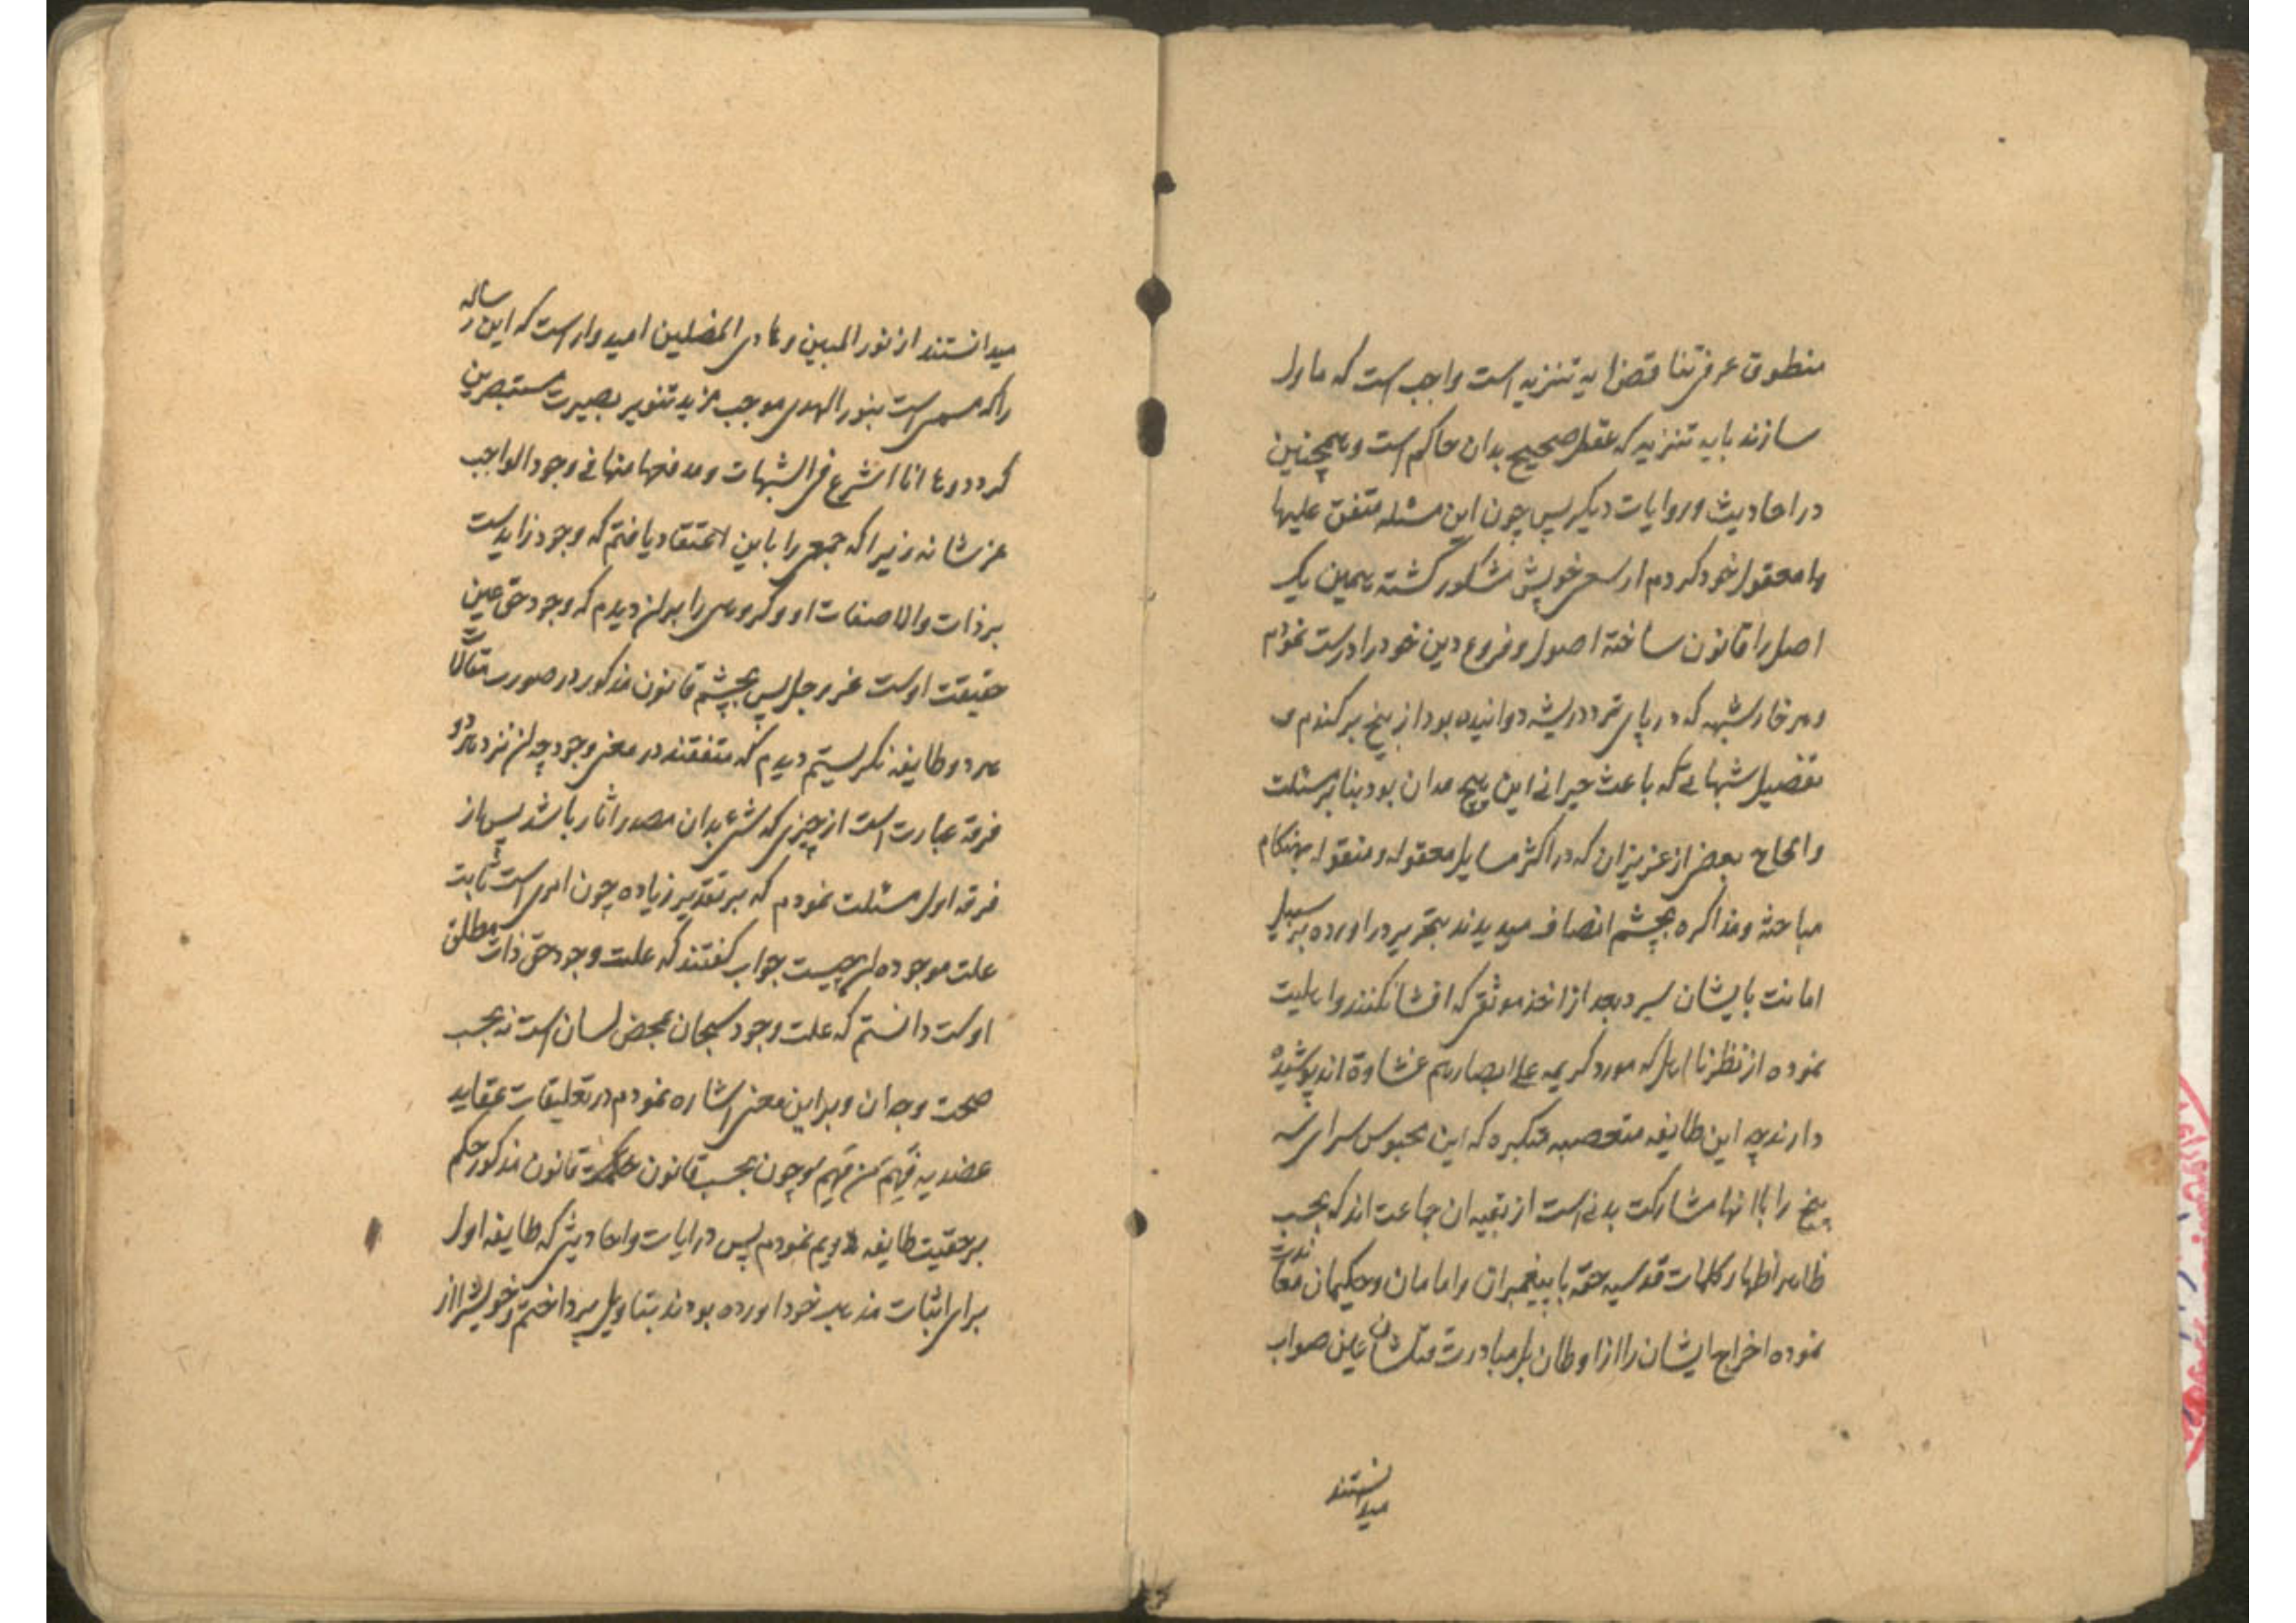 منطوق عرفی تناقض ایه تنزیه است واجب است که ماول
سازند بایه تنزیه که عقل صحیح بدان حاکم است و همچنین
در احادیث و روایات دیگر پس چون این مسئله متفق علیها
را معقول خود کردم از سعی خویش مشکور گشته همین یک
اصل را قانون ساخته اصول و فروع دین خود را درست نمودم
و هر خار شبهه که در پای تردد ریشه دوانیده بود از بیخ برکندم و
تفضیل شبهائی که باعث حیرانی این هیچ مدان بود بنابر مسئلت
و الحاح بعض از عزیزان که در اکثر مسایل معقوله و منقوله بهنکام
مباحثه و مذاکره بچشم انصاف میدیدند بتحریر در اورده بر سبیل
امانت بایشان سپرد بعد از اخذ موثق که افشا نکنند و اهلیت
نموده از نظر نا اهل که مورد کریمه علی ابصارهم غشاوة اند پوشیده
دارند چه این طایفه متعصبه متکبره که این محبوس سرای سه
پنج را باانها مشارکت بدنی است از بقیه ان جماعت اند که بحسب
ظاهر اظهار کلمات قدسیه حقه با پیغمبران و امامان و حکیمان معاندت
نموده اخراج ایشان را از اوطان بل مبادرت قتلشان عین صواب
میدانستند
میدانستند از نور المبین و هادی المضلین امیدوار است که این رساله
را که مسمی است بنور الهدی موجب مزید تنویر بصیرت مستبصرین
کردد و ها انا اشرع فی الشبهات و مدفعها منها فی وجود الواجب
عز شانه زیرا که جمعی را باین اعتقاد یافتم که وجود زاید است
بر ذات والا صفات او و کروهی را بران دیدم که وجود حق عین
حقیقت اوست عز و جل پس بچشم قانون مذکور در صورت مقالات
هر دو طایفه نکریستم دیدم که متفقند در معنی وجود چه ان نزد هر دو
فرقه عبارت است از چیزی که شیء بدان مصدر اثار باشد پس از
فرقه اول مسئلت نمودم که بر تقدیر زیاده چون امری است ثابت
علت موجوده ان چیست جواب کفتند که علت وجود حق ذات مطلق
اوست دانستم که علت وجود سبحان بمحض لسان است نه بحسب
صحت وجدان و براین معنی اشاره نمودم در تعلیقات عقاید
عضدیه فهم من فهم و چون بحسب قانون حکمت قانون مذکور حکم
بر حقیت طایفه دویم نمودم پس در ایات و احادیثی که طایفه اول
برای اثبات مذهب خود اورده بودند بتاویل پرداختم و خویش را از